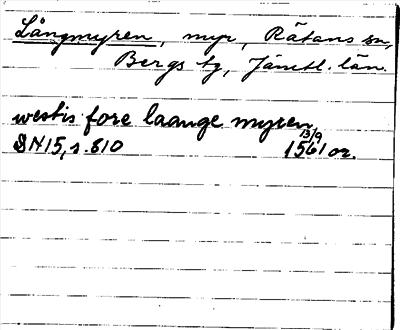 Långmyren, myr, Rätans sn,
Bergs tg, Jämtl. län.
westis fore laange myren
13/9
SN15, s. 810 1561 or.